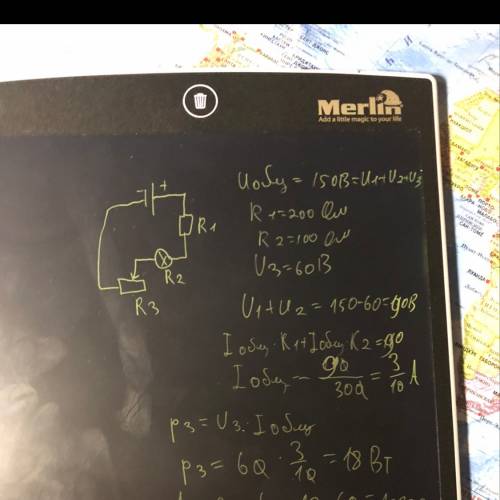 Merlin
Add a little magic to your life
Uобщ = 150В = U1+U2+U3
R1=200 Ом
R2=100 Ом
U3=60В
R1
R2
R3
U1+U2 = 150-60=90В
Iобщ·R1+Iобщ·R2=90
Iобщ = 90/300 = 3/10 А
P3=U3·Iобщ
P3 = 60·3/10 = 18 Вт